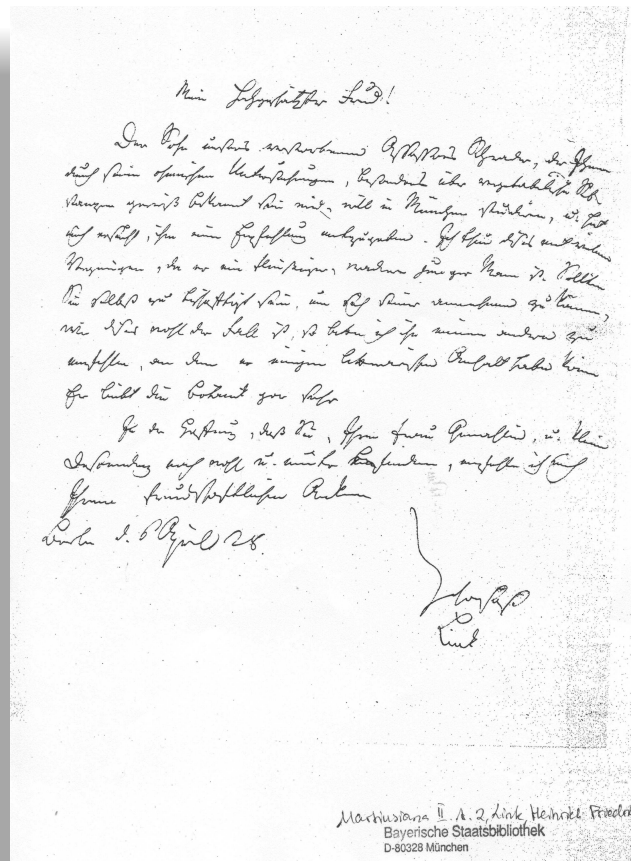 Mein Hochgeschätzter Freund!
Der Sohn unseres verstorbenen Assessors Schrader, der Ihnen
durch seine chemischen Untersuchungen, besonders über vegetabilische Sub-
stanzen gewiß bekannt sein wird, will in München studiren, u. hat
mich ersucht, ihm eine Empfehlung mitzugeben. Ich thue dieses mit vielem
Vergnügen, da er ein fleißiger, junger Mann ist. Sollten
Sie selbst zu beschäftigt sein, um sich seiner annehmen zu können,
wie dieses wohl der Fall ist, so bitte ich ihn einem andern zu
empfehlen, an dem er einigen Anhalt haben kann
Er liebt die Botanik gar sehr
In der Hoffnung, daß Sie, Ihre Frau Gemahlin, u. kleine
wohl u. munter befinden, empfehle ich mich
Ihrem freundschaftlichen Andenken
Berlin d. 6 April 28.
Link
Martiusiana II. A. 2, Link, Heinrich Friedr
Bayerische Staatsbibliothek
D-80328 München